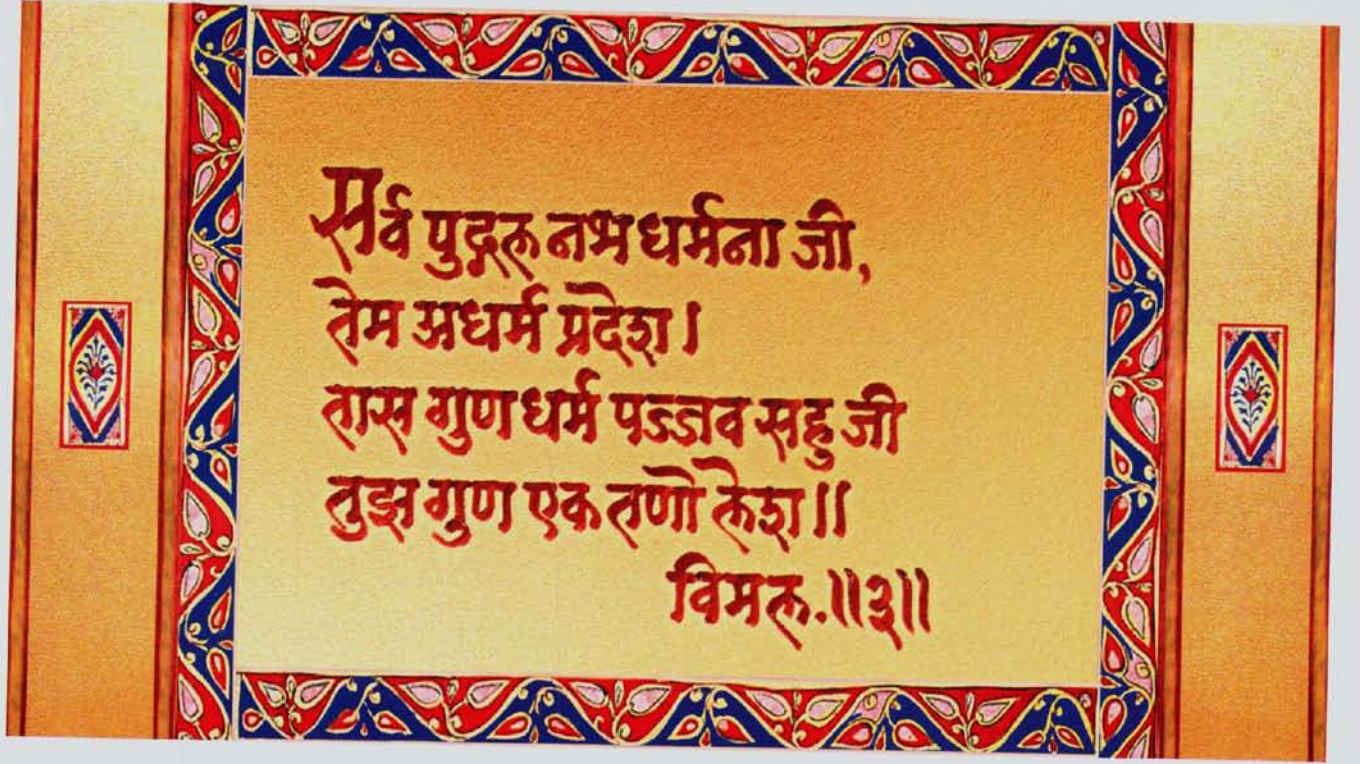 सर्व पुद्गल नभ धर्मना जी,
तेम अधर्म प्रदेश।
तास गुण धर्म पज्जव सहु जी
तुझ गुण एक तणो लेश॥
विमल.॥३॥